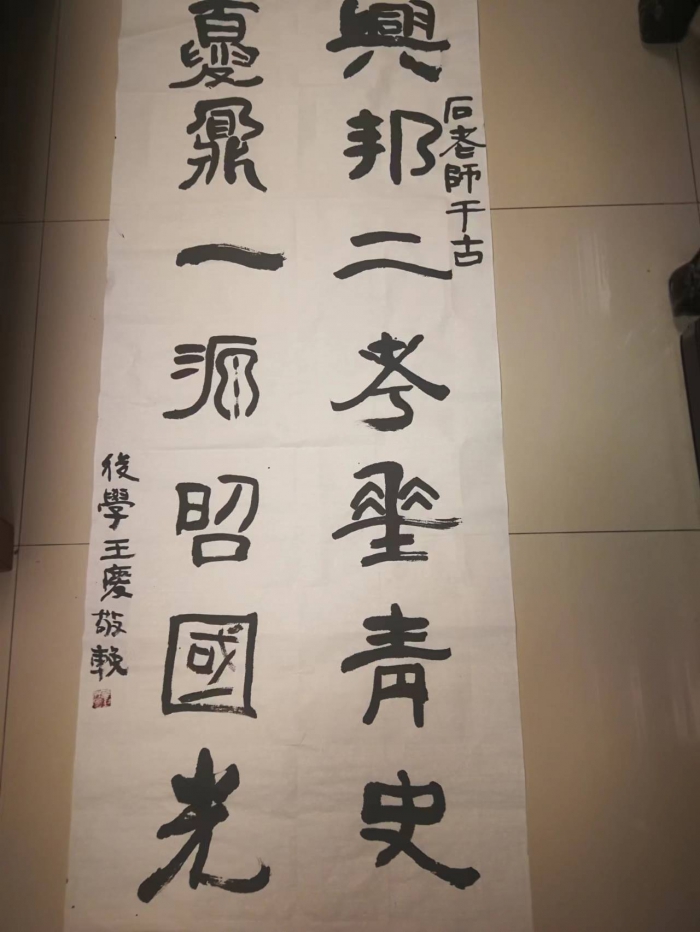 石老師千古
興邦二考垂青史
夏鼐一源昭國光
後學王慶敬輓